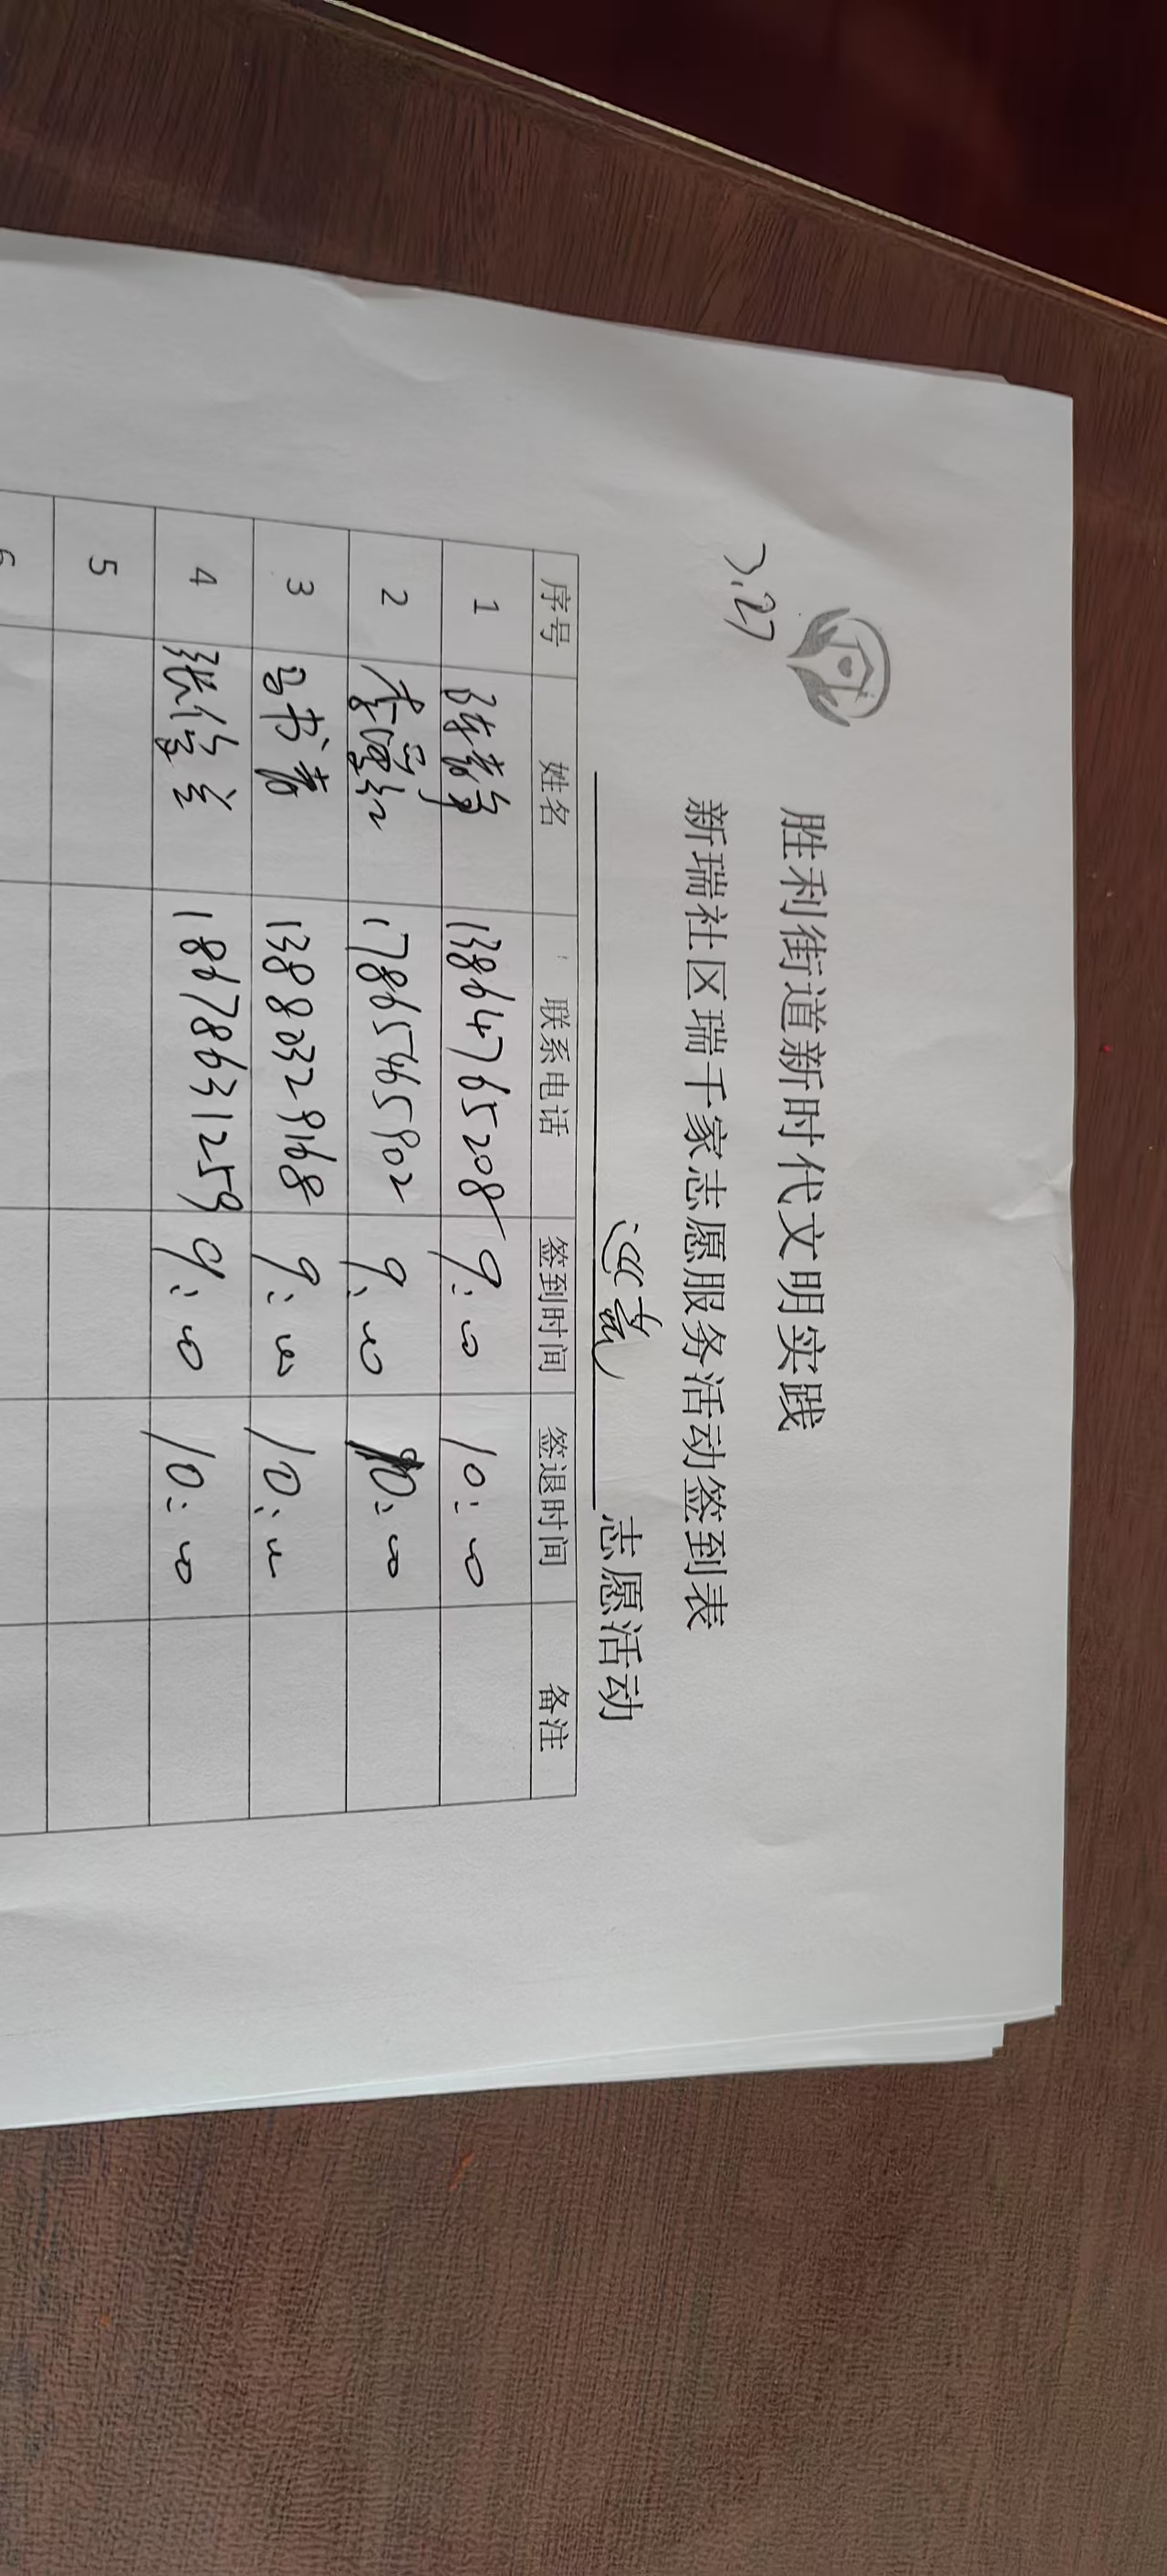 3.27
胜利街道新时代文明实践
新瑞社区瑞千家志愿服务活动签到表
志愿活动
序号 姓名 联系电话 签到时间 签退时间 备注
1 13864765208 9:00 10:00
2 17865465902 9:00 10:00
3 马书青 13880329168 9:00 10:00
4 张俊兰 18678631259 9:00 10:00
5
6